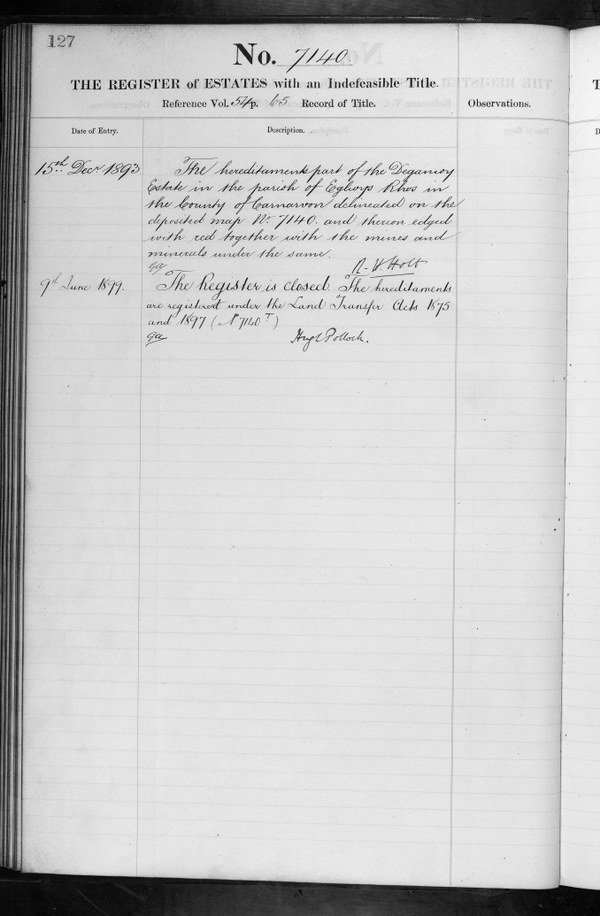 127
No. 7140.
THE REGISTER of ESTATES with an Indefeasible Title.
Reference Vol. 54 p. 65 Record of Title.
Observations.
Date of Entry.
Description.
15th Decr 1893
The hereditaments part of the Deganwy
Estate in the parish of Eglwys Rhos in
the County of Carnarvon delineated on the
deposited map No. 7140. and thereon edged
with red together with the mines and
minerals under the same.
R. H. Holt
9th June 1899.
The Register is closed. The hereditaments
are registered under the Land Transfer Acts 1875
and 1897 (No 7140 T)
Hugh Pollock.